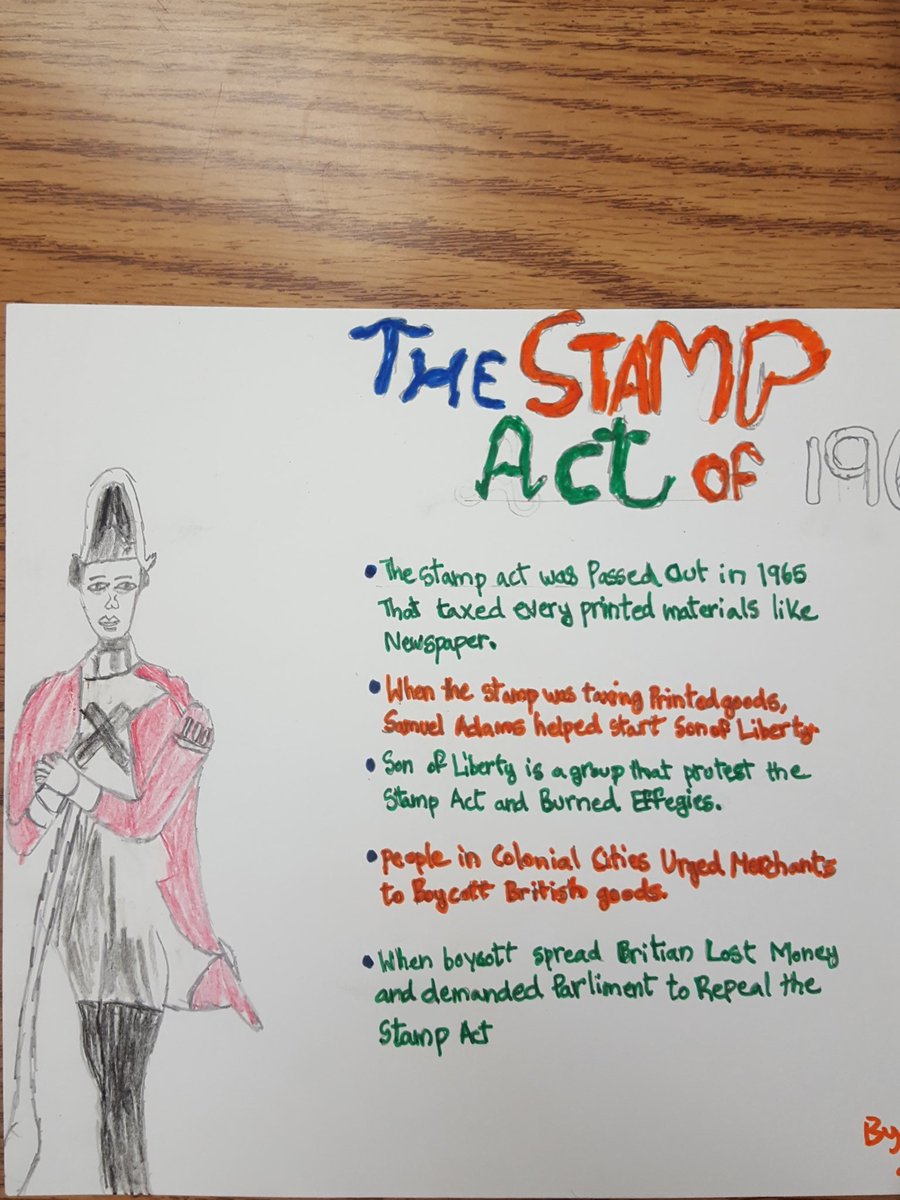 THE STAMP
Act OF 196
• The stamp act was Passed Out in 1965
That taxed every printed materials like
Newspaper.
• When the stamp was taxing Printed goods,
Samuel Adams helped start Son of Liberty.
• Son of Liberty is a group that protest the
Stamp Act and Burned Effegies.
• people in Colonial Cities Urged Merchants
to Boycott British goods.
• When boycott spread Britian Lost Money
and demanded Parliment to Repeal the
Stamp Act
By